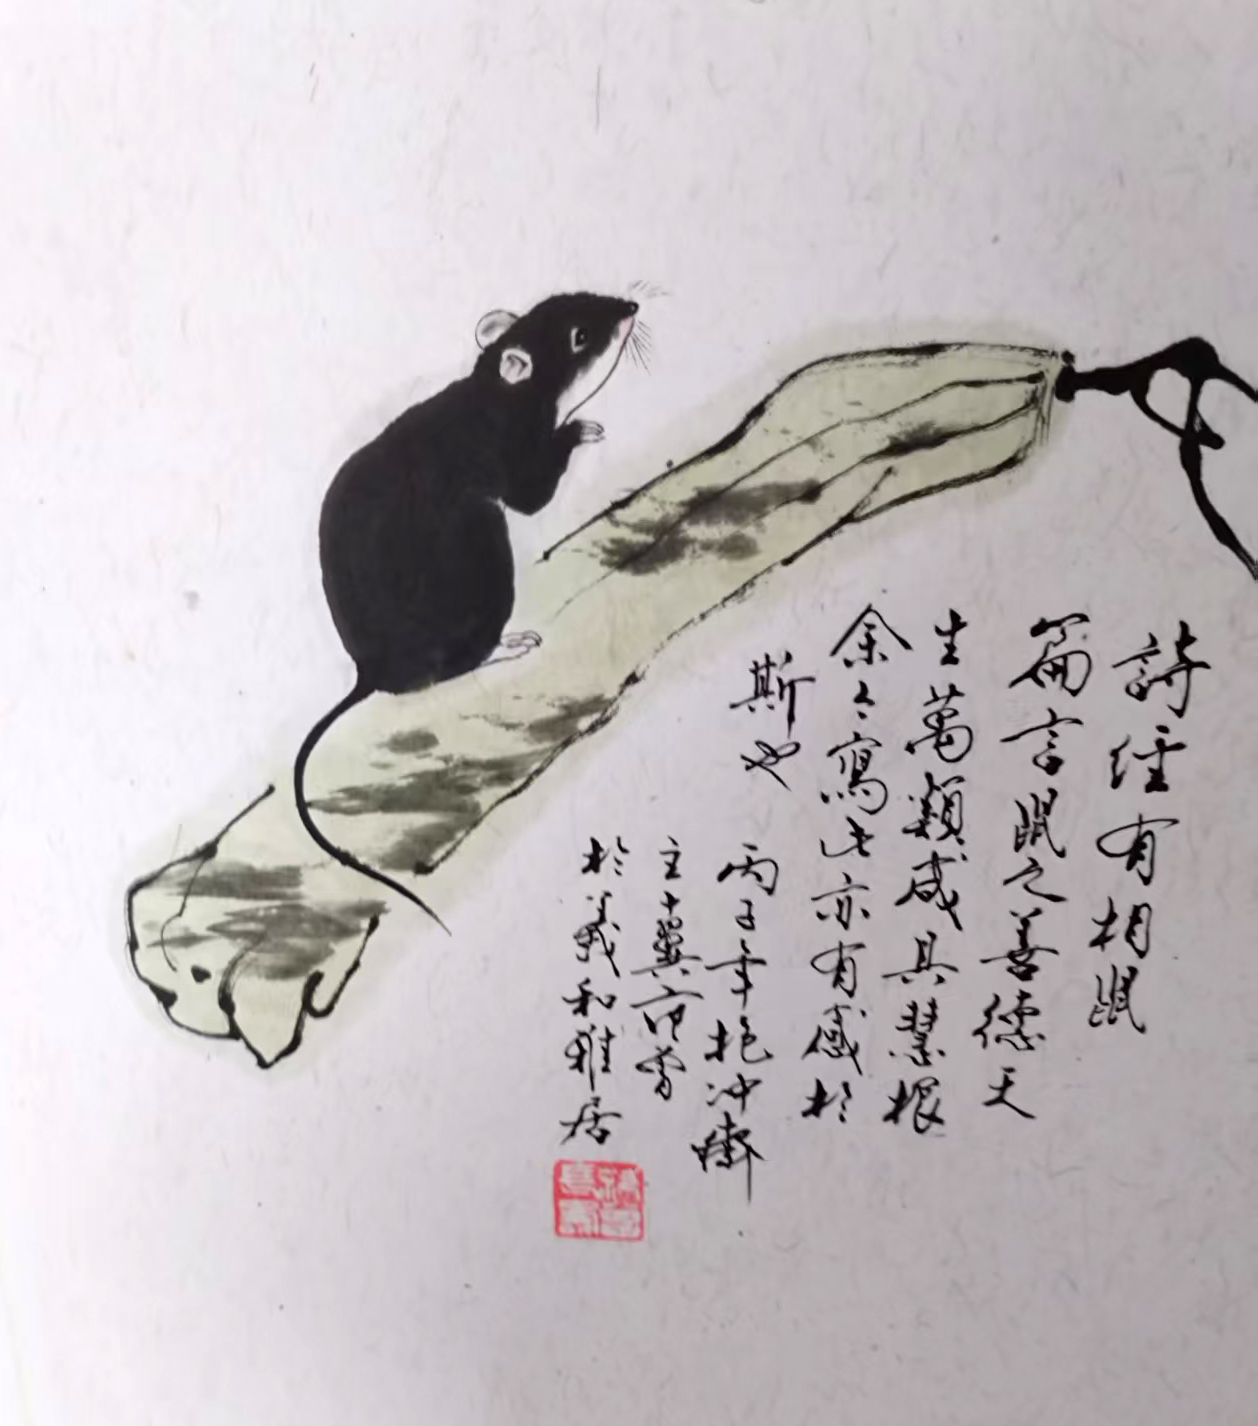 詩經有相鼠
篇言鼠之善德天
生萬類咸具慧根
余今寫此亦有感於
斯也 丙子年抱冲齋
主十翼范曾
於義和雅居